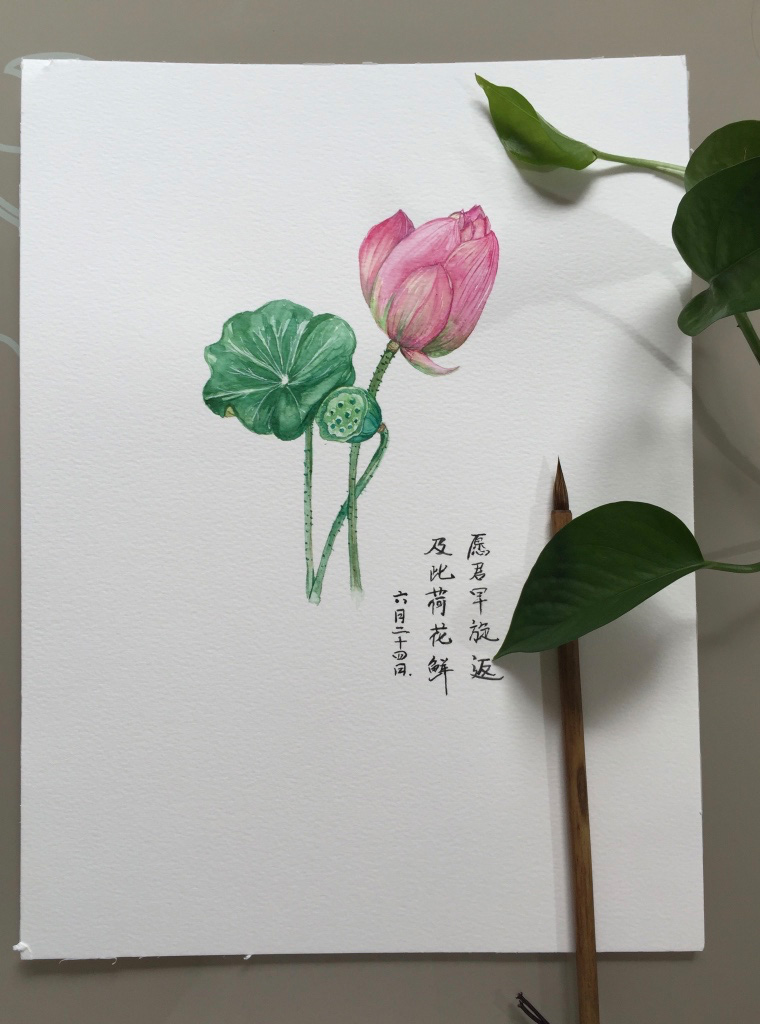 愿君早旋返
及此荷花鲜
六月二十四日.